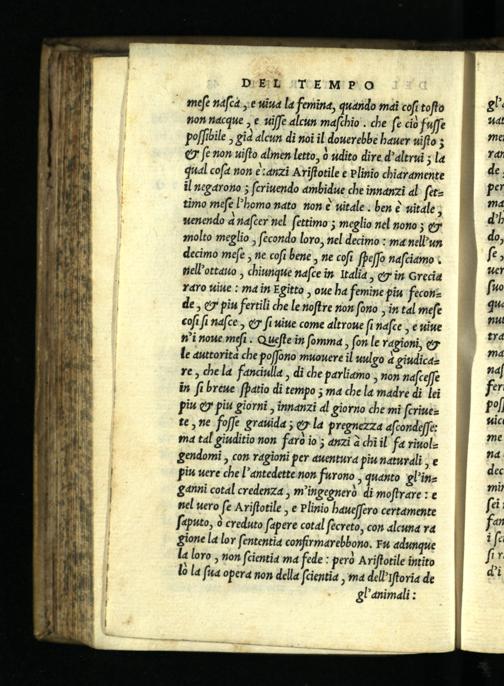 DEL TEMPO
mese nasca, e uiua la femina, quando mai cosi tosto
non nacque, e uisse alcun maschio. che se ciò fusse
possibile, già alcun di noi il douerebbe hauer uisto;
& se non uisto almen letto, ò udito dire d'altrui; la
qual cosa non è: anzi Aristotile e Plinio chiaramente
il negarono; scriuendo ambidue che innanzi al set-
timo mese l'homo nato non è uitale. ben è uitale,
uenendo à nascer nel settimo; meglio nel nono; &
molto meglio, secondo loro, nel decimo: ma nell'un
decimo mese, ne cosi bene, ne cosi spesso nasciamo.
nell'ottauo, chiunque nasce in Italia, & in Grecia
raro uiue: ma in Egitto, oue ha femine piu fecon-
de, & piu fertili che le nostre non sono, in tal mese
cosi si nasce, & si uiue come altroue si nasce, e uiue
n'i noue mesi. Queste in somma, son le ragioni, &
le auttorità che possono muouere il uulgo à giudica-
re, che la fanciulla, di che parliamo, non nascesse
in si breue spatio di tempo; ma che la madre di lei
piu & piu giorni, innanzi al giorno che mi scriue-
te, ne fosse grauida; & la pregnezza ascondesse:
ma tal giuditio non farò io; anzi à chi il fa riuol-
gendomi, con ragioni per auentura piu naturali, e
piu uere che l'antedette non furono, quanto gl'in-
ganni cotal credenza, m'ingegnerò di mostrare: e
nel uero se Aristotile, e Plinio hauessero certamente
saputo, ò creduto sapere cotal secreto, con alcuna ra
gione la lor sententia confirmarebbono. Fu adunque
la loro, non scientia ma fede: però Aristotile intito
lò la sua opera non della scientia, ma dell'Istoria de
gl'animali: